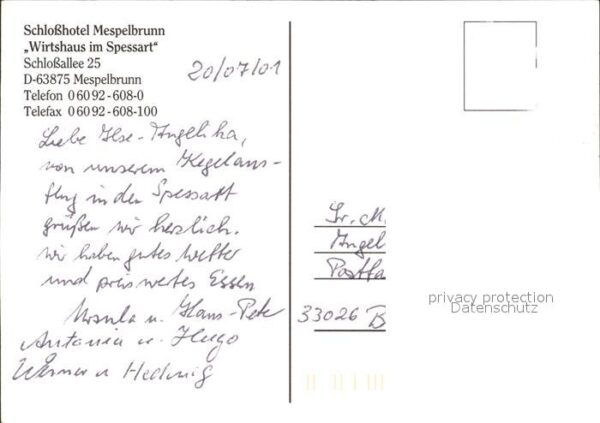 Schloßhotel Mespelbrunn
„Wirtshaus im Spessart“
Schloßallee 25
D-63875 Mespelbrunn
Telefon 0 60 92 - 608-0
Telefax 0 60 92 - 608-100
20/07/01
Liebe Ilse-Angelika,
von unserem Kegelaus-
flug in den Spessart
grüßen wir herzlich.
Wir haben gutes Wetter
und preiswertes Essen
Ursula u. Hans-Peter
Antonia u. Hugo
Werner u Hedwig
Fr. M.
Angel
Postfa
33026 B
privacy protection
Datenschutz